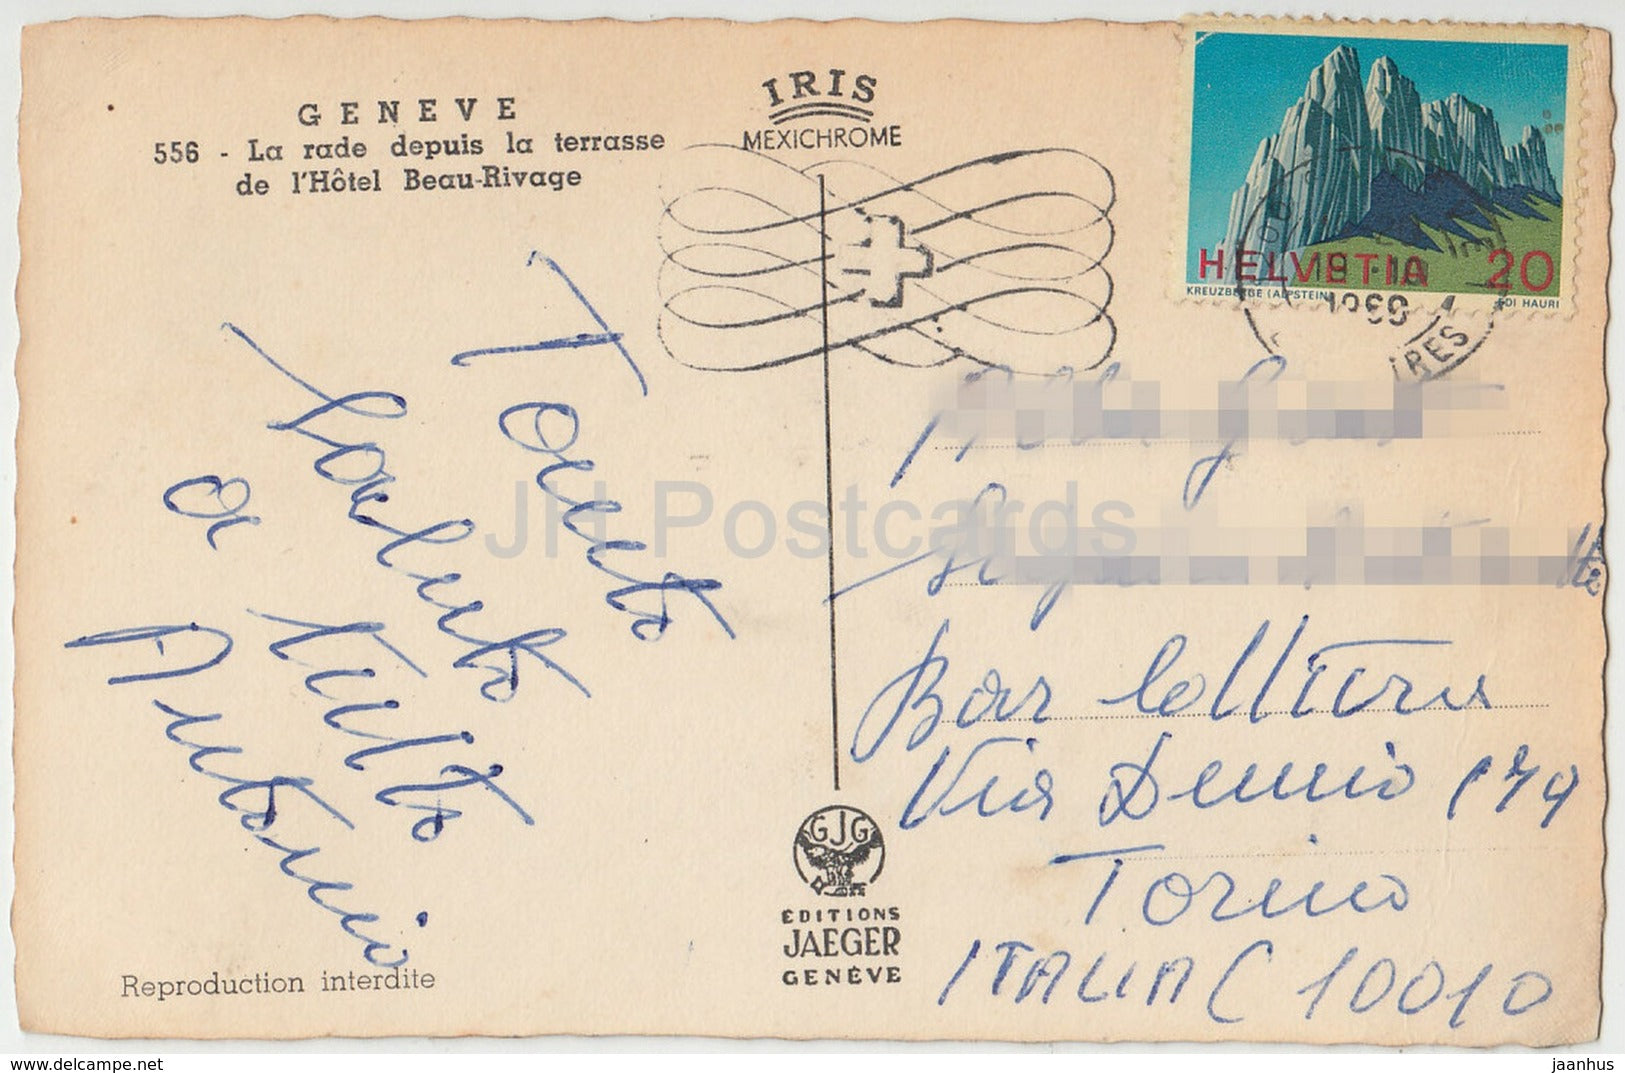 GENEVE
556 - La rade depuis la terrasse
de l'Hôtel Beau-Rivage
IRIS
MEXICHROME
HELVETIA 20
KREUZBERGE (ALPSTEIN) EDI HAURI
1969
Tante
Salute
a tutti
Antonio
Bar
Via 179
Torino
ITALIA ( 10010
ÉDITIONS
JAEGER
GENÈVE
GJG
Reproduction interdite
JH Postcards
www.delcampe.net
jaanhus